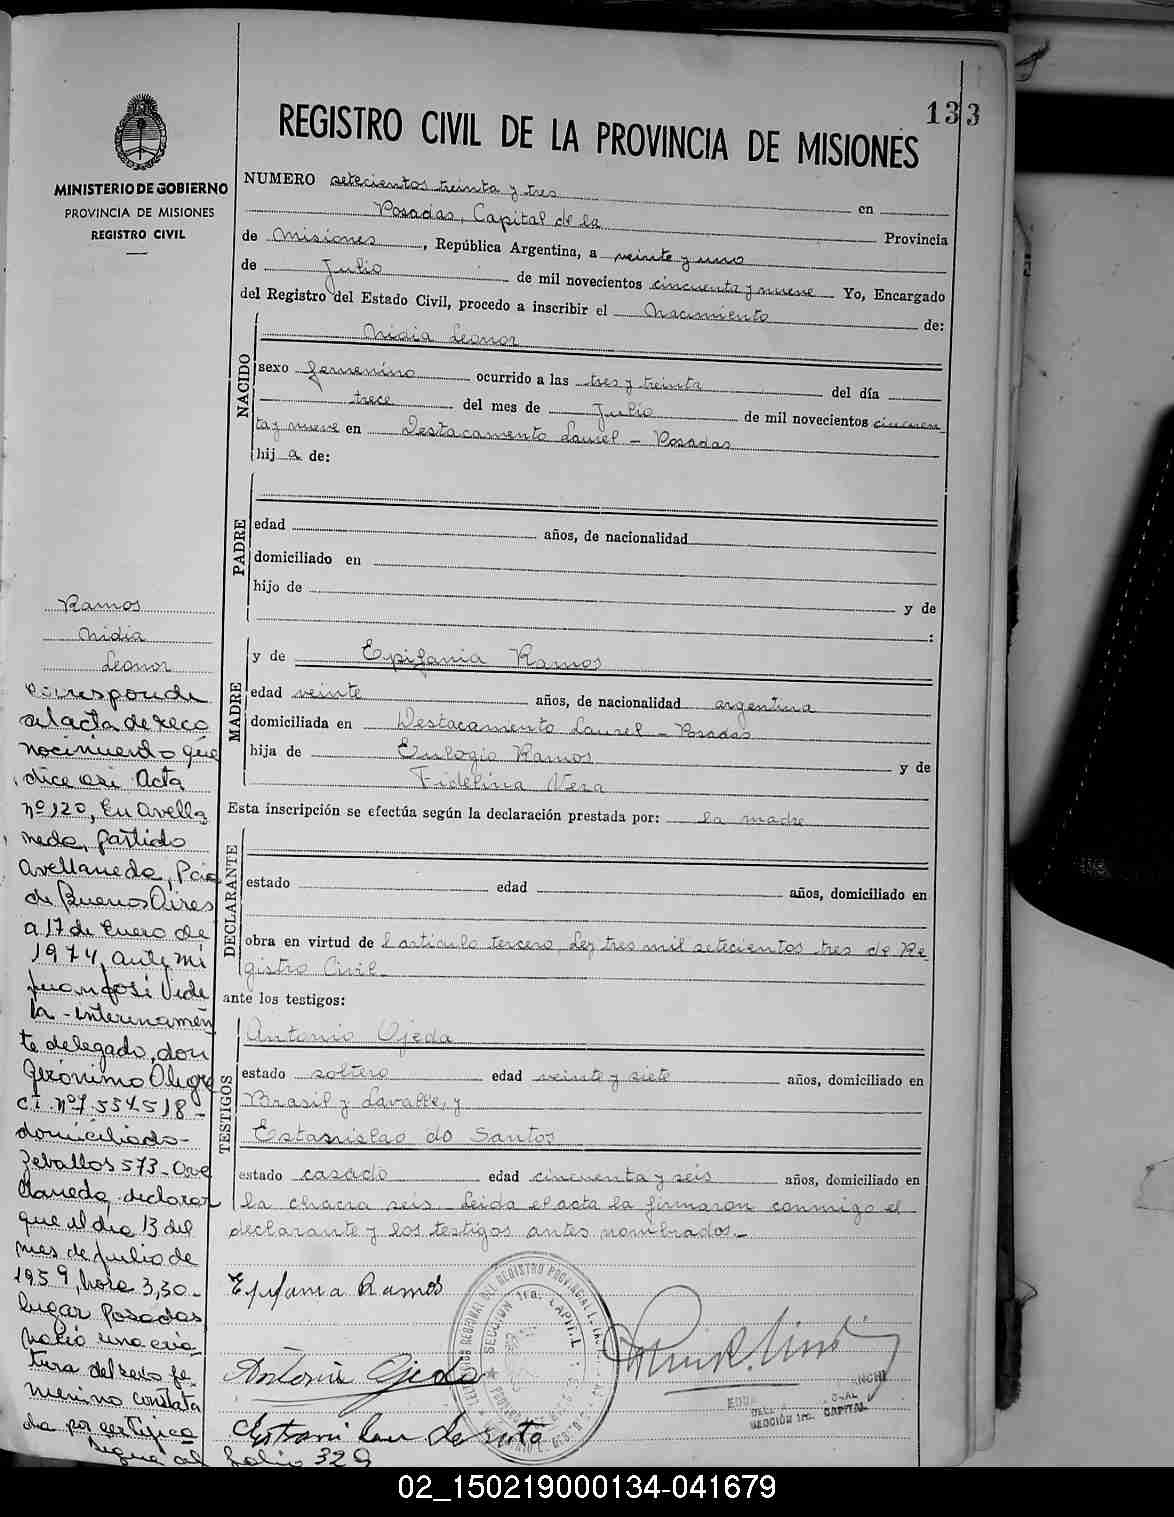 133
REGISTRO CIVIL DE LA PROVINCIA DE MISIONES
MINISTERIO DE GOBIERNO
PROVINCIA DE MISIONES
REGISTRO CIVIL
NUMERO setecientos treinta y tres en
Posadas, Capital de la Provincia
de Misiones, República Argentina, a veinte y uno
de Julio de mil novecientos cincuenta y nueve Yo, Encargado
del Registro del Estado Civil, procedo a inscribir el Nacimiento de:
NACIDO
Nidia Leonor
sexo femenino ocurrido a las tres y treinta del día
trece del mes de Julio de mil novecientos cincuen
ta y nueve en Destacamento Laurel - Posadas
hij a de:
PADRE
edad años, de nacionalidad
domiciliado en
hijo de y de
:
MADRE
y de Epifania Ramos
edad veinte años, de nacionalidad argentina
domiciliada en Destacamento Laurel - Posadas
hija de Eulogio Ramos y de
Fidelina Vera
Esta inscripción se efectúa según la declaración prestada por: la madre
DECLARANTE
estado edad años, domiciliado en
obra en virtud de l artículo tercero, Ley tres mil setecientos tres de Re
gistro Civil.
ante los testigos:
TESTIGOS
Antonio Ojeda
estado soltero edad veinte y siete años, domiciliado en
Brasil y Lavalle, y
Estanislao do Santos
estado casado edad cincuenta y seis años, domiciliado en
la chacra seis. Leida el acta la firmaron conmigo el
declarante y los testigos antes nombrados.-
Epifania Ramos
Antonio Ojeda
SECCION 1ra. CAPITAL
SECCIÓN 1ra. CAPITAL
Ramos
Nidia
Leonor
corresponde
al acta de reco
nocimiento que
dice asi Acta
nº 120, En Avella
neda, partido
Avellaneda, Pcia
de Buenos Aires
a 17 de Enero de
1974, ante mi
Juan José Vide
la - interinamen
te delegado, don
Jerónimo Olegre
C.I. nº 7.557.518 -
domiciliado -
Zeballos 573 - Ave
llaneda, declara
que el día 13 del
mes de Julio de
1959, hora 3,30 -
lugar Posadas
nació una cria-
tura del sexo fe-
menino constata
da por certifica
Sigue al folio 329
02_150219000134-041679